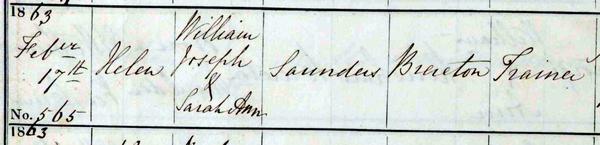 1863
Feb^er 17^th
No. 565
Helen
William
Joseph
&
Sarah Ann
Saunders
Brereton
Trainer
1863